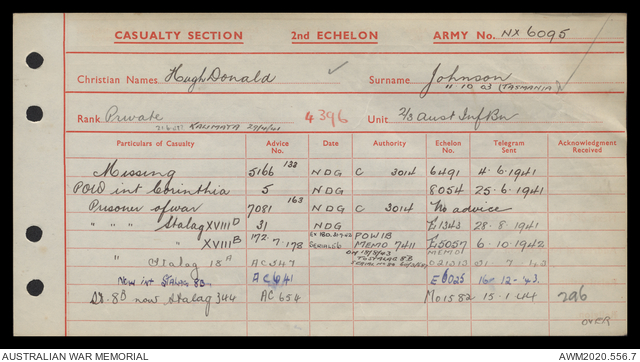 CASUALTY SECTION 2nd ECHELON ARMY No. NX 6095
Christian Names Hugh Donald ✓ Surname Johnson
" 10 03 (TASMANIA)
Rank Private 4396 Unit 2/3 Aust Inf Bn
KALAMATA 29/4/41
Particulars of Casualty Advice No. Date Authority Echelon No. Telegram Sent Acknowledgment Received
Missing 5166 138 NDG C 3014 6491 4-6-1941
POW int Corinthia 5 NDG 8054 25-6-1941
Prisoner of war 7081 163 NDG C 3014 No advice
" " " Stalag XVIII D 31 NDG E1343 28-8-1941
" XVIII B 172-7-178 SERIAL 56 POWIB MEMO 7411 E5057 6-10-1942
" Stalag 18A AC 547 TO STALAG 8B 021313 31-7-43
Now int STALAG 8B AC 641 E6025 16-12-43
St. 8B now Stalag 344 AC 654 M01582 15-1-44 296
OVER
AUSTRALIAN WAR MEMORIAL AWM2020.556.7